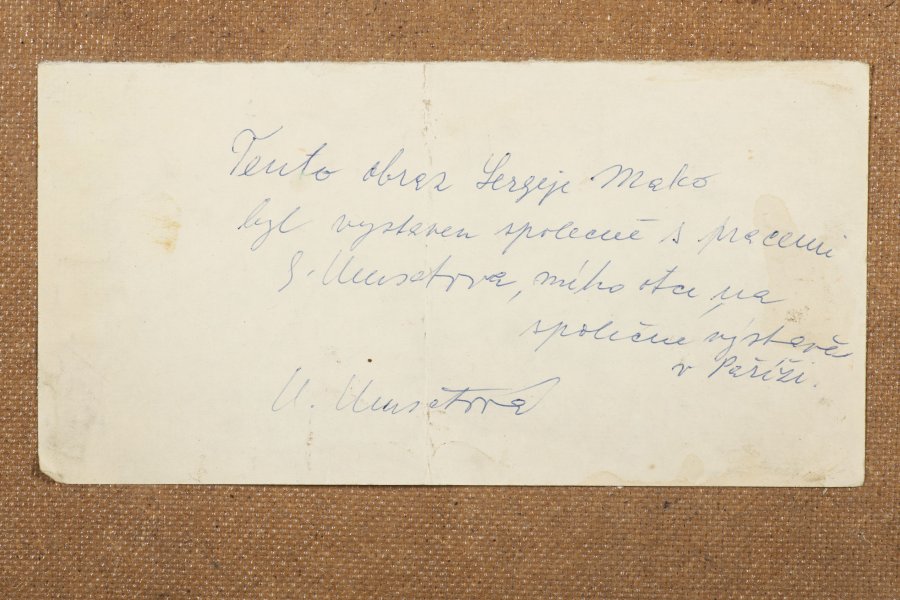 Tento obraz Sergeje Mako
byl vystaven společně s pracemi
G. Musatova, mého otce, na
společné výstavě
v Paříži.
Musatova